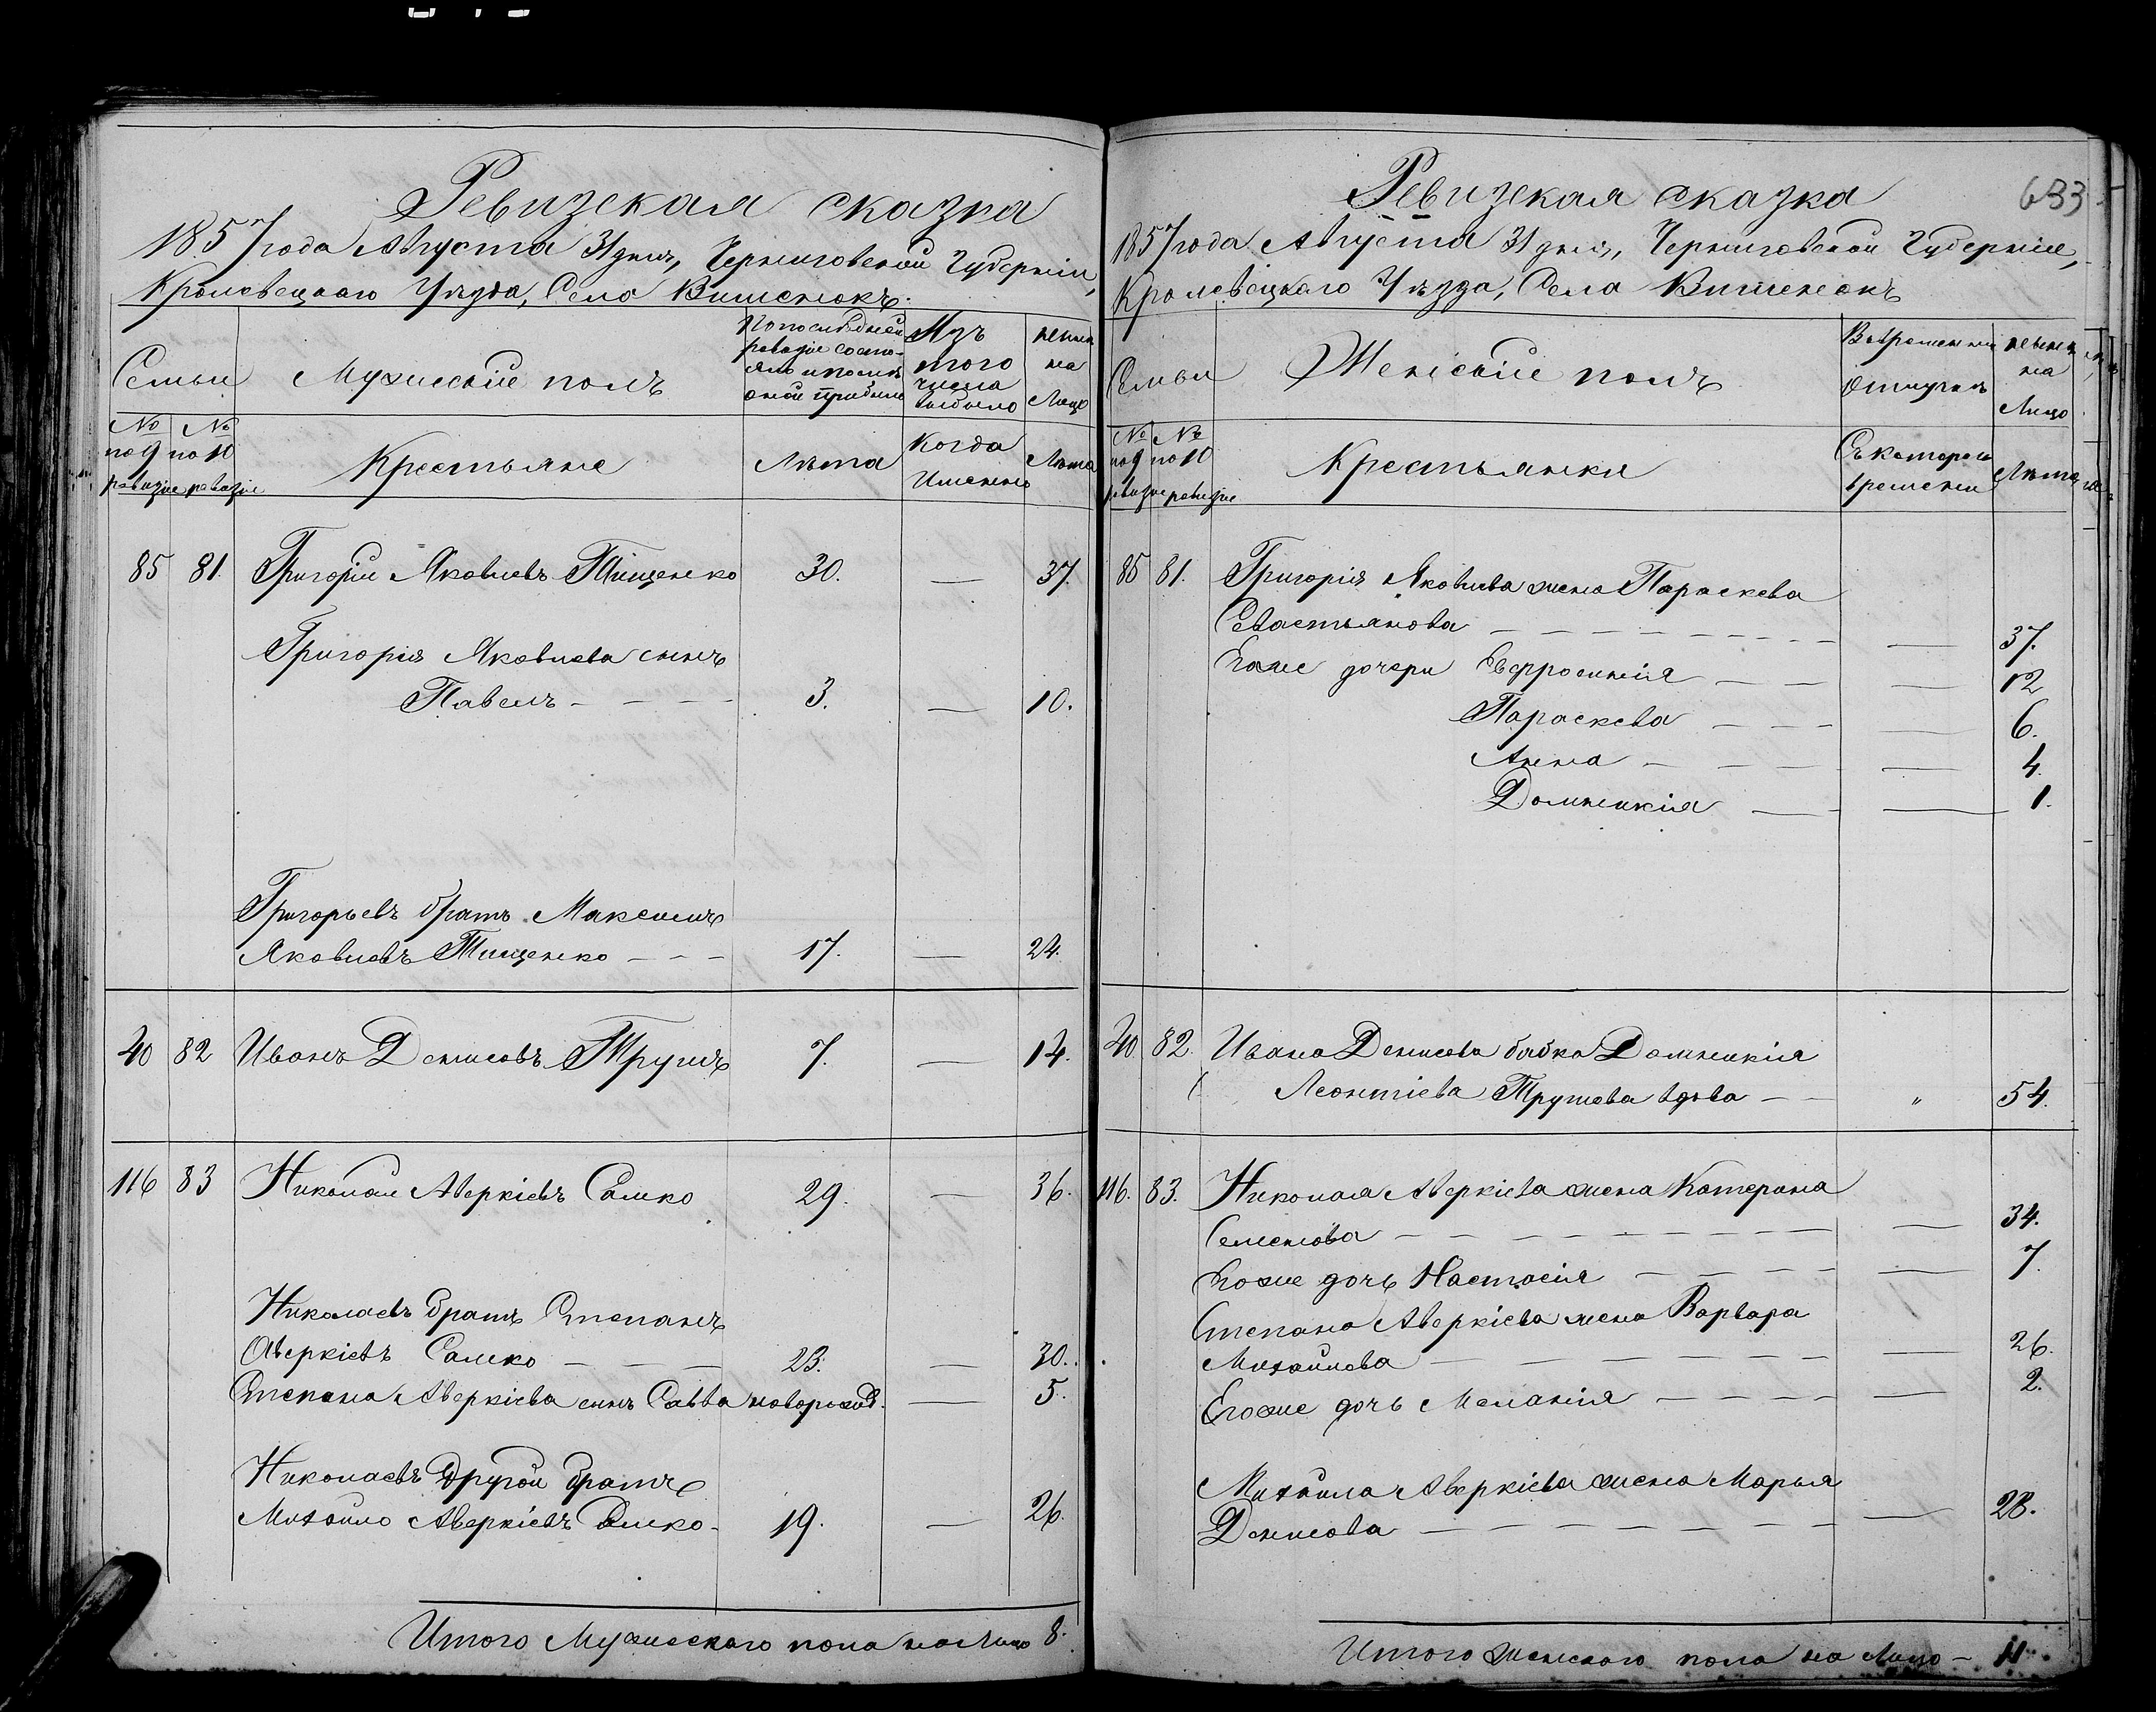 Ревизская сказка
1857 года Августа 31 дня, Черниговской Губерніи,
Кролевецкаго Уѣзда, Села Вишенокъ.
Семьи
Мужескій полъ
По последней
ревизіи состо-
яло и после
оной прибыло
Изъ
того
числа
выбыло
ныне
на
Лицо
№
по 9
ревизіи
№
по 10
ревизіи
Крестьяне
Лѣта
Когда
Именно
Лѣта
85 81. Григорій Яковлевъ Тищенко 30. — 37.
Григорія Яковлева сынъ
Павелъ - - - - 3. — 10.
Григорьевъ братъ Максимъ
Яковлевъ Тищенко - - - 17. — 24.
40 82 Иванъ Денисовъ Трушъ 7. — 14.
116 83 Николай Аверкіевъ Сашко 29. — 36.
Николаевъ братъ Степанъ
Аверкіевъ Сашко - - - 23. — 30.
Степана Аверкіева сынъ Савва новорожд. — 5.
Николаевъ другой братъ
Михайло Аверкіевъ Сашко - 19. — 26.
Итого Мужескаго пола на Лицо 8.
633
Ревизская сказка
1857 года Августа 31 дня, Черниговской Губерніи,
Кролевецкаго Уѣзда, Села Вишенокъ
Семьи
Женскій полъ
Во временной
отлучке
ныне
на
Лицо
№
по 9
ревизіи
№
по 10
ревизіи
Крестьянки
Съ котораго
времени
Лѣта
85 81. Григорія Яковлева жена Параскева
Севастьянова - - - - - - - - — 37.
Егоже дочери Евфросинія - - — 12
Параскева - - - — 6.
Анна - - - — 4.
Домникія - - — 1.
40 82. Ивана Денисова бабка Домникія
Леонтіева Трушева вдова - - " 54.
116. 83. Николая Аверкіева жена Катерина
Семенова - - - - - - - - - — 34.
Егоже дочь Настасія - - - - — 7.
Степана Аверкіева жена Варвара
Михайлова - - - - - - - — 26.
Егоже дочь Меланія - - - - — 2.
Михайла Аверкіева жена Марья
Денисова - - - - - - - — 28.
Итого женскаго пола на Лицо - 11